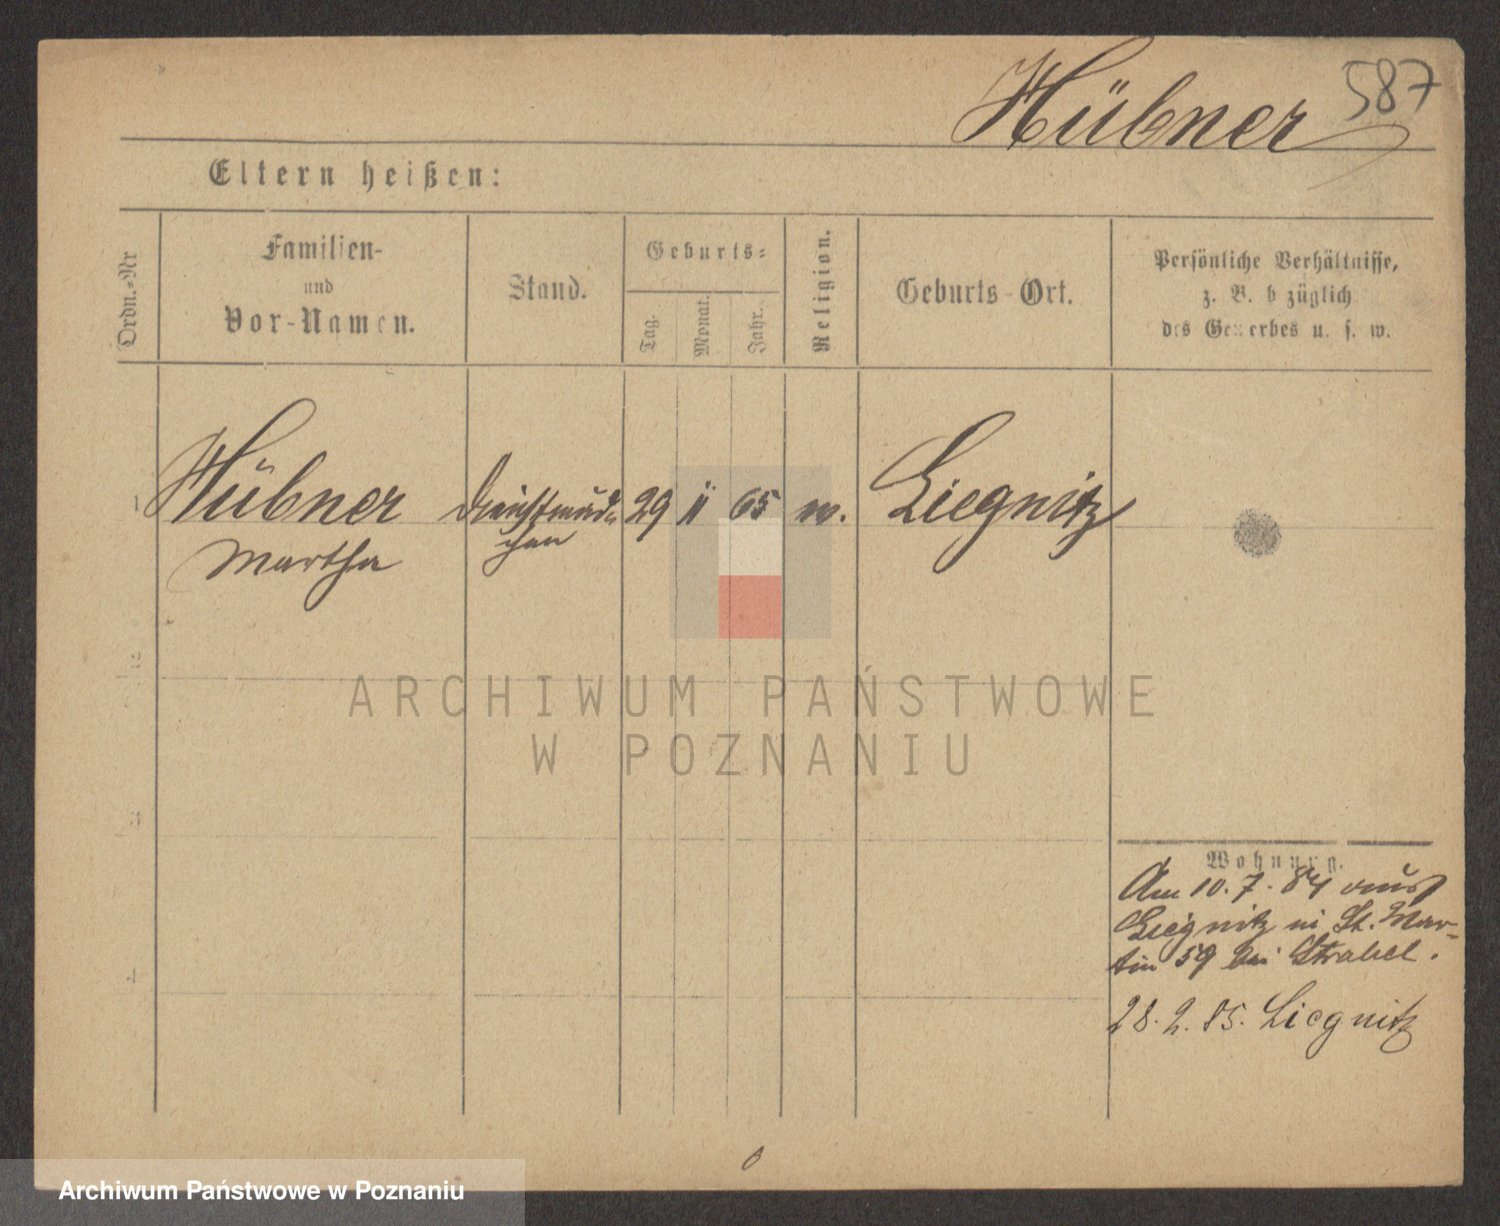 587
Hübner
Eltern heißen:
Ordn.-Nr
Familien-
und
Vor-Namen.
Stand.
Geburts-
Tag.
Monat.
Jahr.
Religion.
Geburts-Ort.
Persönliche Verhältnisse,
z. B. bezüglich
des Gewerbes u. s. w.
1
Hübner
Martha
Dienstmäd-
chen
29
65
Liegnitz
2
3
4
ARCHIWUM PAŃSTWOWE
W POZNANIU
Wohnung.
Am 10. 7. 84 aus
Liegnitz in St. Mar-
tin 59 bei
28. 2. 85. Liegnitz
Archiwum Państwowe w Poznaniu